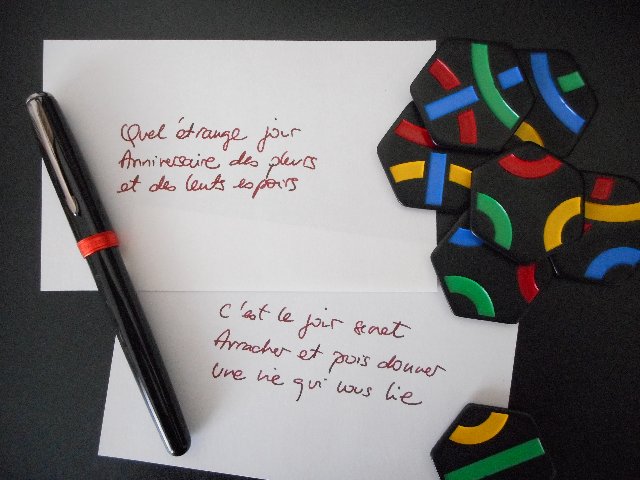 Quel étrange jour
Anniversaire des pleurs
et des lents espoirs
C'est le jour secret
Arracher et puis donner
Une vie qui vous lie